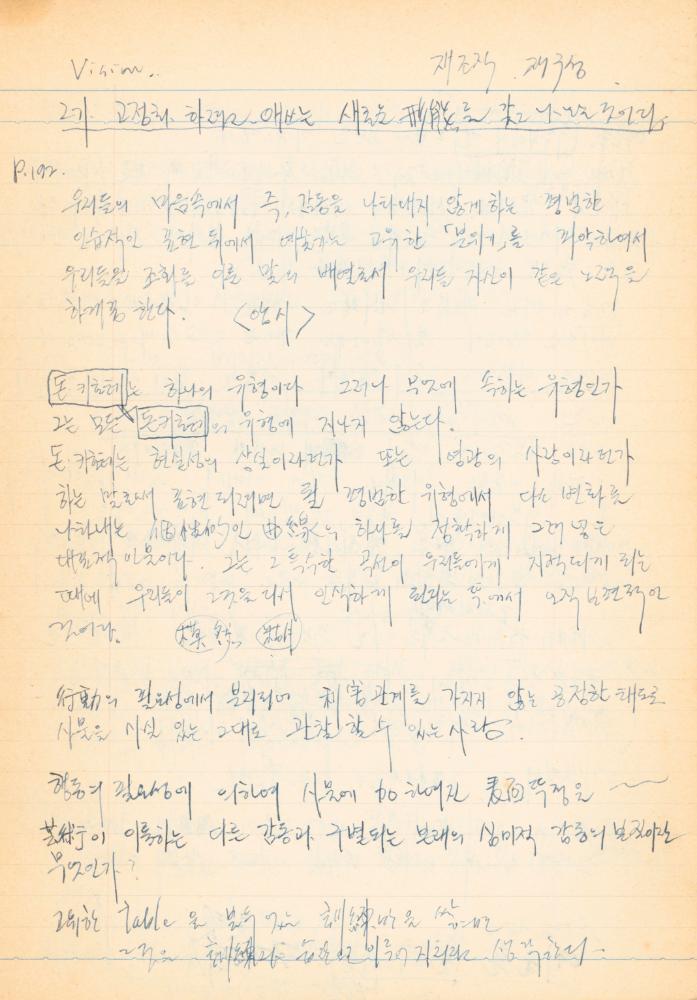 Vision.. 재조작. 재구성.
그가 고정화 하려고 애쓰는 새로운 形態를 갖고 나타난 것이다.
P.192.
우리들의 마음속에서 즉, 감동을 나타내지 않게 하는 평범한
인습적인 표현 뒤에서 예술가는 고유한 「분위기」를 파악하여서
우리들은 조화를 이룬 말의 배열로서 우리들 자신이 같은 노력을
하게끔 한다. <암시>
돈.키호테는 하나의 유형이다 그러나 무엇에 속하는 유형인가
그는 모든 돈키호테의 유형에 지나지 않는다.
돈.키호테는 현실성의 상실이라던가 또는 영광의 사랑이라던가
하는 말로써 표현되려면 될 평범한 유형에서 다른 변화를
나타내는 個性的인 曲線의 하나를 정확하게 그려 넣은
대표적 인물이다. 그는 그 특수한 곡선이 우리들에게 지적되게 되는
때에 우리들이 그것을 다시 인식하게 된다는 뜻에서 오직 보편적인
것이다. 模糊
行動의 필요성에서 분리되어 利害관계를 가지지 않는 공정한 태도로
사물을 사실 있는 그대로 관찰할 수 있는 사람.
행동의 필요성에 의하여 사물에 加하여진 表面뚝정은 ~
芸術이 이룩하는 다른 감동과 구별되는 본래의 심미적 감동의 본질이란
무엇인가?
고유한 table을 訓練만을 쌓으면
그것은 訓練과 습관으로 이루어지리라 생각한다.